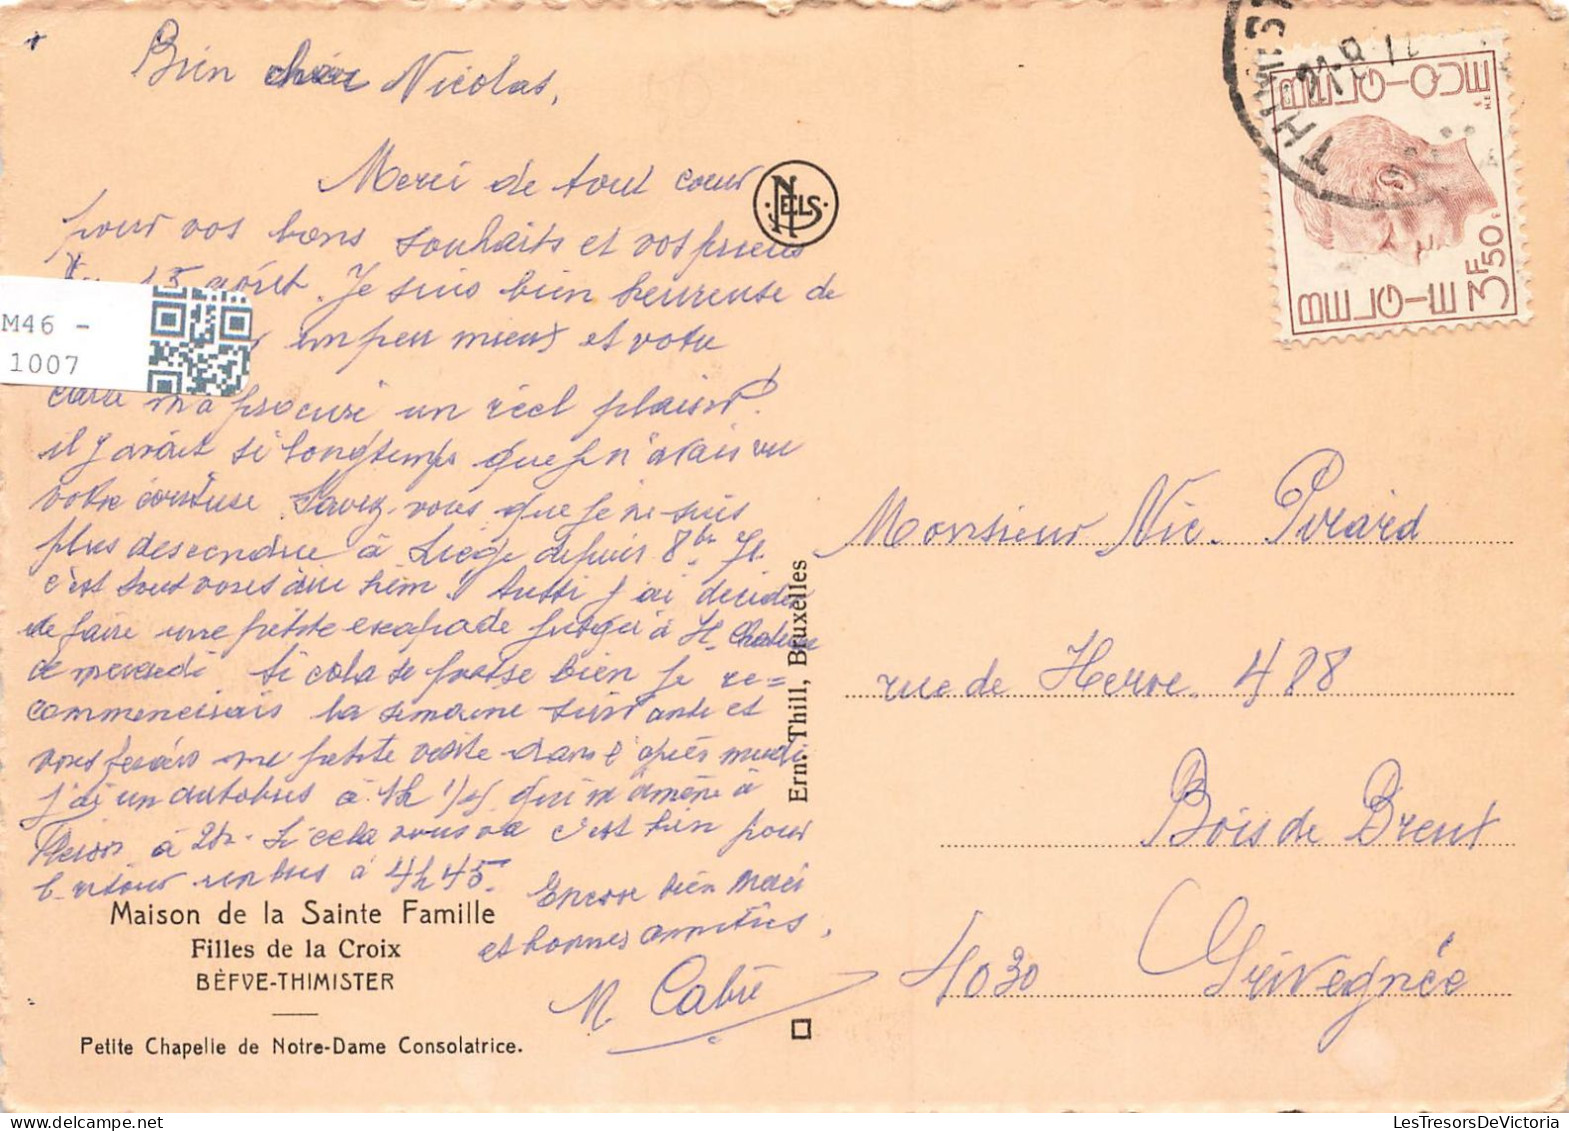 Bien cher Nicolas,
Merci de tout cœur
pour vos bons souhaits et vos prières
15 août. Je suis bien heureuse de
un peu mieux et votre
carte m'a procuré un réel plaisir.
il y avait si longtemps que je n'avais vu
votre écriture. Savez-vous que je ne suis
plus descendue à Liège depuis 8bre 71.
c'est tout vous dire hein! Aussi j'ai décidé
de faire une petite escapade jusqu'à
ce mercredi Si cela se passe bien je re=
commencerais la semaine suivante et
vous ferais une petite visite dans l'après midi
j'ai un autobus à 1h 1/4 qui m'amène à
à 2h. Si cela vous va c'est bien pour
le retour un bus à 4h45.
Encore bien merci
et bonnes amitiés,
M. Cabié
Maison de la Sainte Famille
Filles de la Croix
BÈFVE-THIMISTER
Petite Chapelle de Notre-Dame Consolatrice.
M46 -
1007
NELS
Ern. Thill, Bruxelles
THIMIST
BELGIE
BELGIQUE
3F50
Monsieur Nic. Pirard
rue de Herve 488
Bois de Breux
4030 Grivegnée
LesTresorsDeVictoria.com